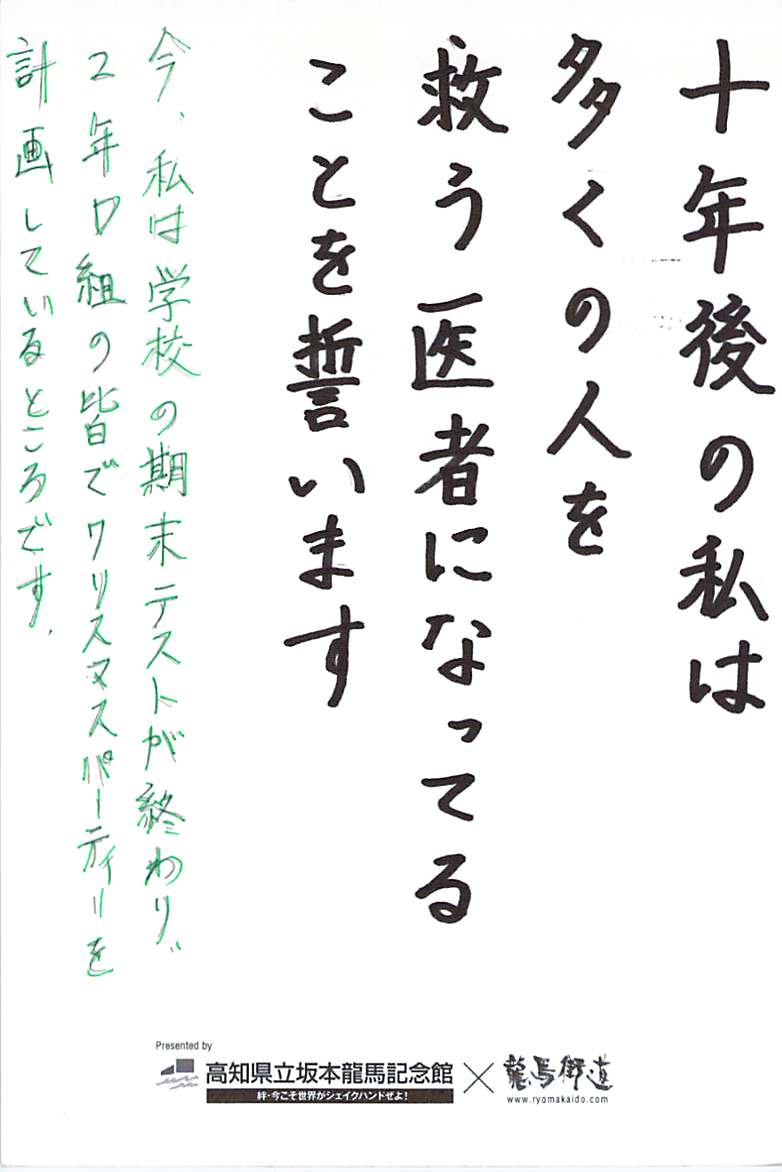 十年後の私は
多くの人を
救う医者になってる
ことを誓います
今、私は学校の期末テストが終わり、
2年D組の皆でクリスマスパーティーを
計画しているところです。
Presented by
高知県立坂本龍馬記念館
絆・今こそ世界がシェイクハンドぜよ!
×
龍馬街道
www.ryomakaido.com